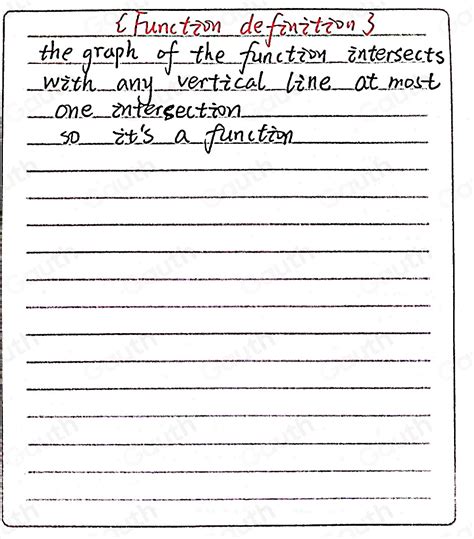 {Function definition}
the graph of the function intersects
with any vertical line at most
one intersection
so it's a function